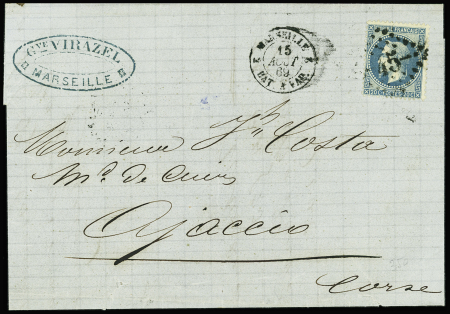 Gve VIRAZEL
MARSEILLE
MARSEILLE
15
AOUT
69
BAT. A VAP.
FRANÇAIS
Monsieur Jh Costa
Md. de Cuirs
Ajaccio
Corse